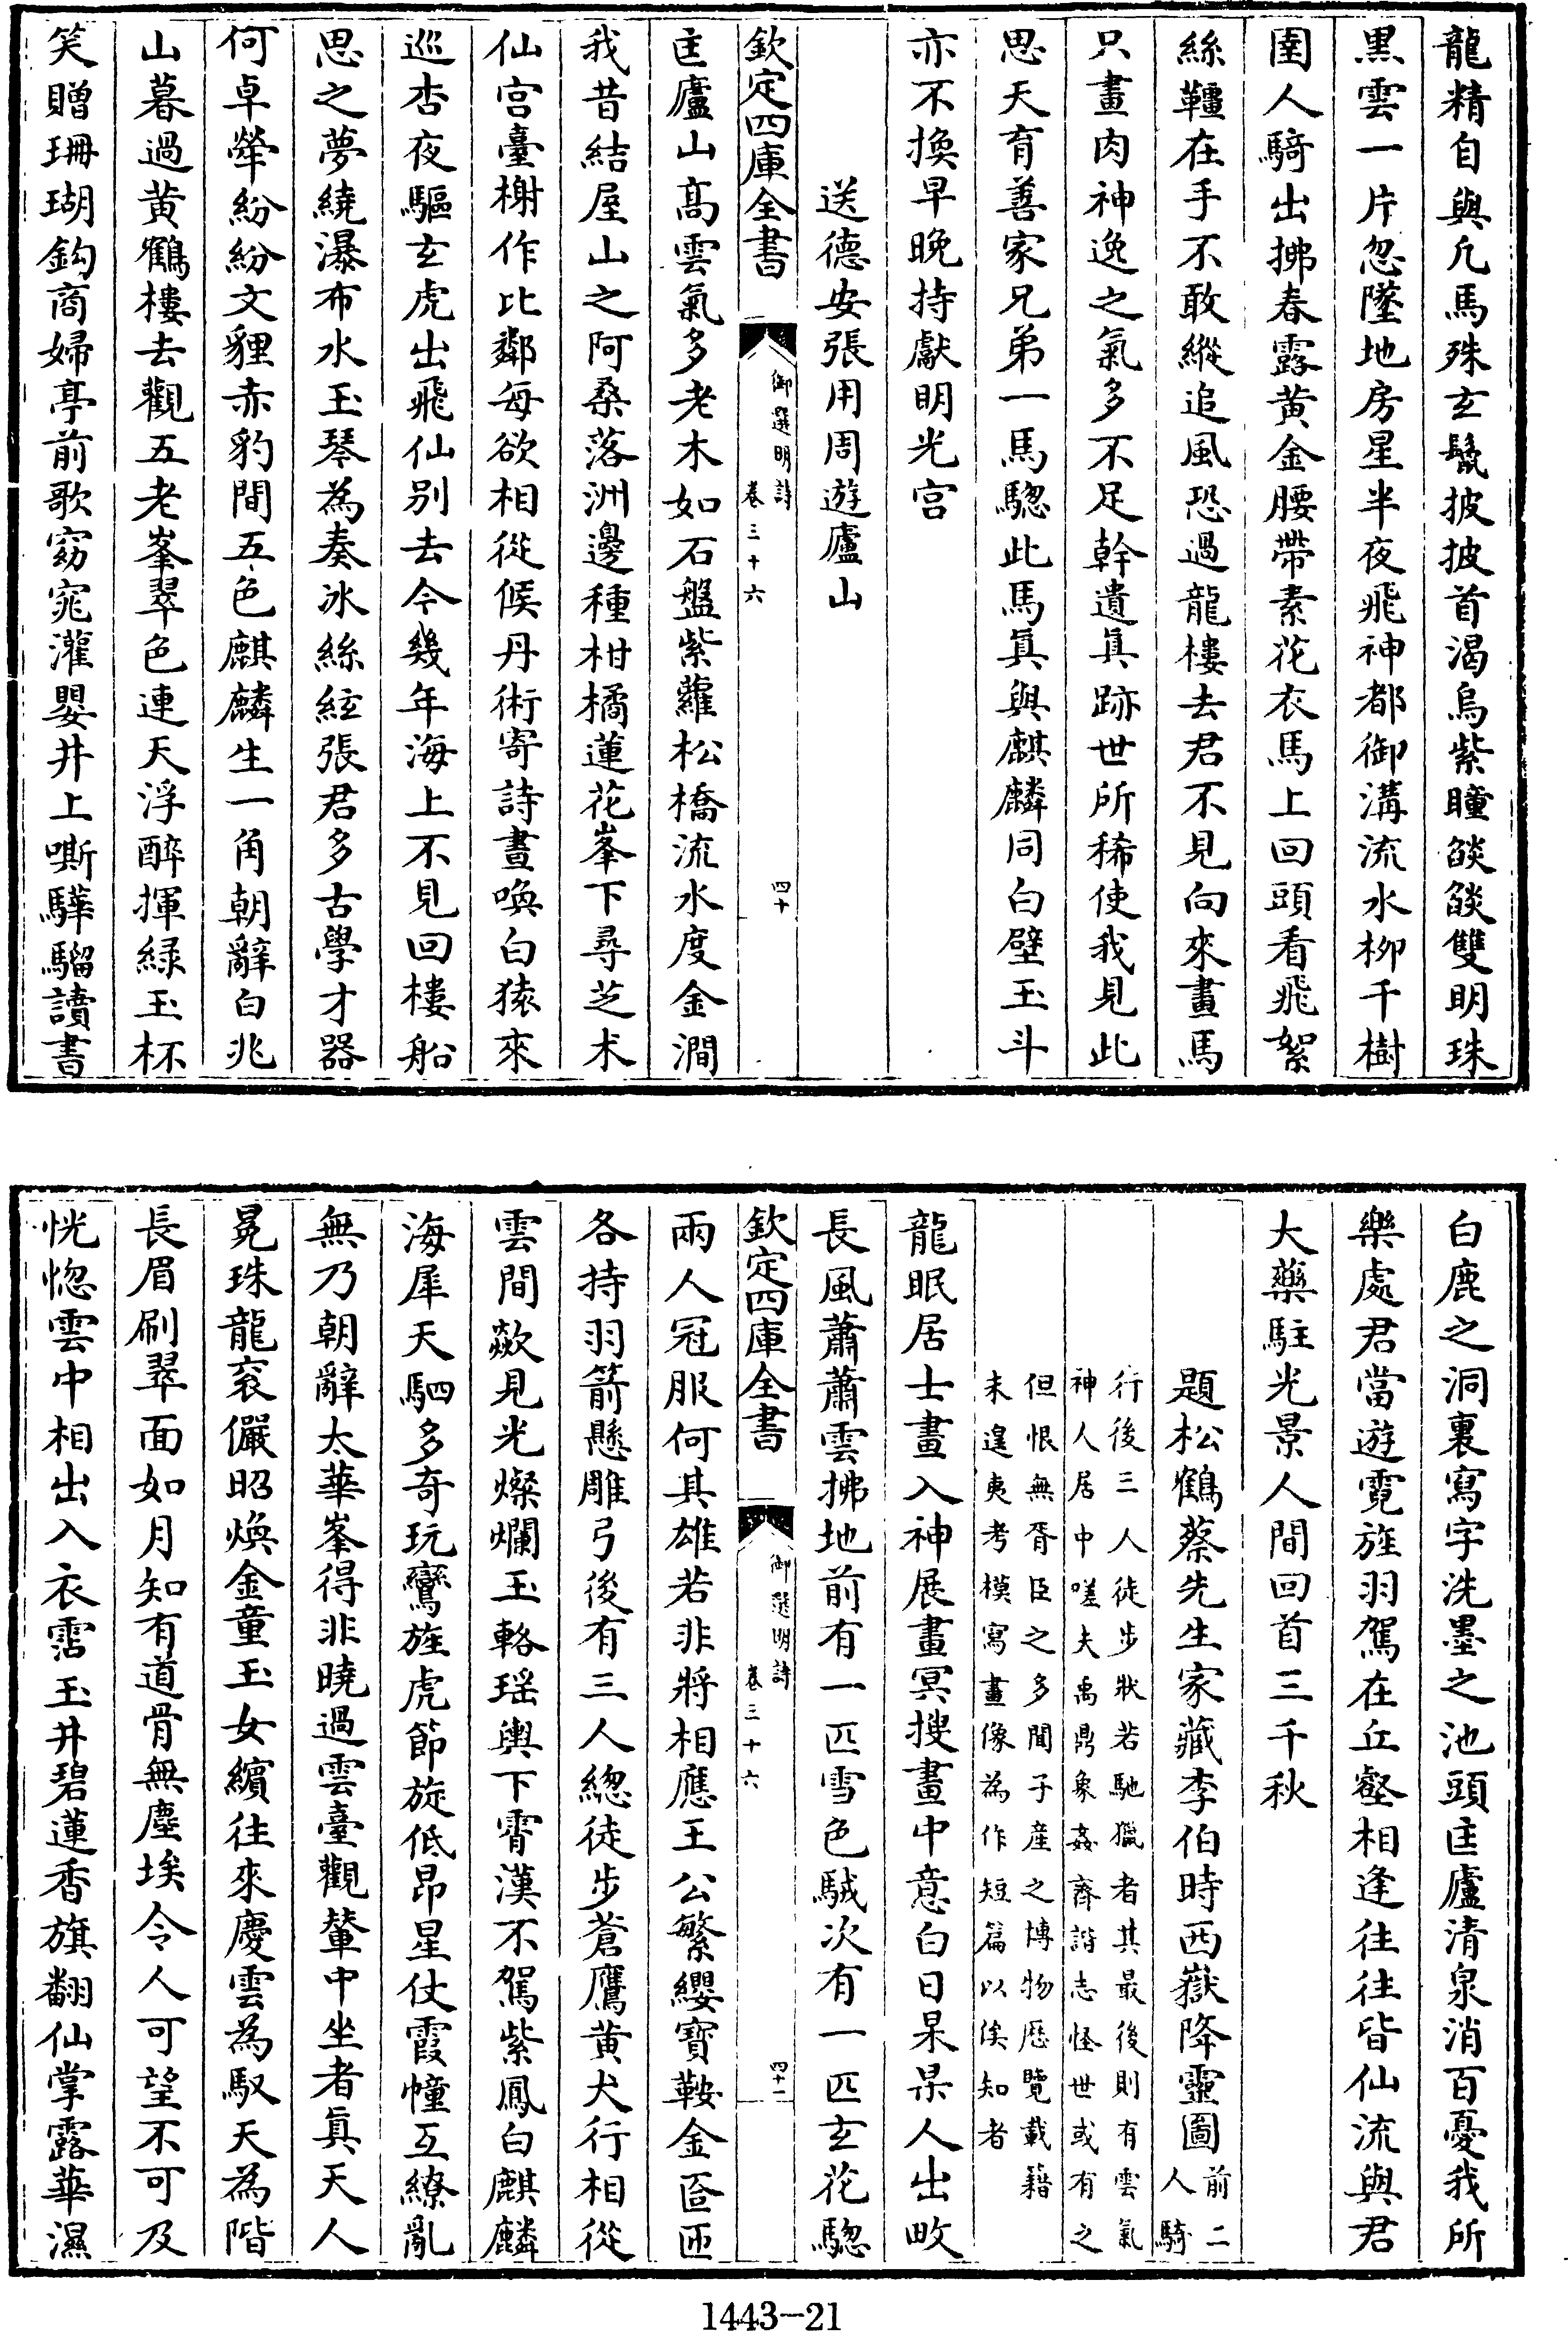 龍精自與凡馬殊玄鬛披披首渴烏紫瞳燄燄雙明珠
黒雲一片忽墜地房星半夜飛神都御溝流水栁千樹
圉人騎出拂春露黄金腰帶素花衣馬上回頭看飛絮
絲韁在手不敢縱追風恐過龍樓去君不見向來畫馬
只畫肉神逸之氣多不足幹遺真跡世所稀使我見此
思天育善家兄弟一馬驄此馬真與麒麟同白壁玉斗
亦不換早晚持獻明光宫
送德安張用周遊廬山
欽定四庫全書
御選明詩
卷三十六
四十
匡廬山髙雲氣多老木如石盤紫蘿松橋流水度金澗
我昔結屋山之阿桑落洲邊種柑橘蓮花峯下尋芝术
仙宫臺榭作比鄰每欲相從候丹術寄詩晝喚白猿來
巡杏夜驅玄虎出飛仙别去今幾年海上不見回樓船
思之夢繞瀑布水玉琴為奏冰絲絃張君多古學才器
何卓犖紛紛文貍赤豹間五色麒麟生一角朝辭白兆
山暮過黄鶴樓去觀五老峯翠色連天浮醉揮緑玉杯
笑贈珊瑚鈎商婦亭前歌窈窕灌嬰井上嘶驊騮讀書
白鹿之洞裏寫字洗墨之池頭匡廬清泉消百憂我所
樂處君當遊霓旌羽駕在丘壑相逢往往皆仙流與君
大藥駐光景人間回首三千秋
題松鶴蔡先生家藏李伯時西嶽降靈圖前二人騎
行後三人徒步狀若馳獵者其最後則有雲氣
神人居中嗟夫禹鼎象姦齊諧志怪世或有之
但恨無胥臣之多聞子産之博物歴覽載籍
未遑夷考模寫畫像為作短篇以俟知者
龍眠居士畫入神展畫冥搜畫中意白日杲杲人出畋
長風蕭蕭雲拂地前有一匹雪色駥次有一匹玄花驄
欽定四庫全書
御選明詩
卷三十六
四十一
兩人冠服何其雄若非將相應王公繁纓寳鞍金匼匝
各持羽箭懸雕弓後有三人總徒步蒼鷹黄犬行相從
雲間歘見光燦爛玉輅瑶輿下霄漢不駕紫鳳白麒麟
海犀天駟多奇玩鸞旌虎節旋低昂星仗霞幢互繚亂
無乃朝辭太華峯得非曉過雲臺觀輦中坐者真天人
冕珠龍衮儼昭煥金童玉女繽往來慶雲為馭天為階
長眉刷翠面如月知有道骨無塵埃令人可望不可及
恍惚雲中相出入衣霑玉井碧蓮香旗翻仙掌露華濕
1443-21